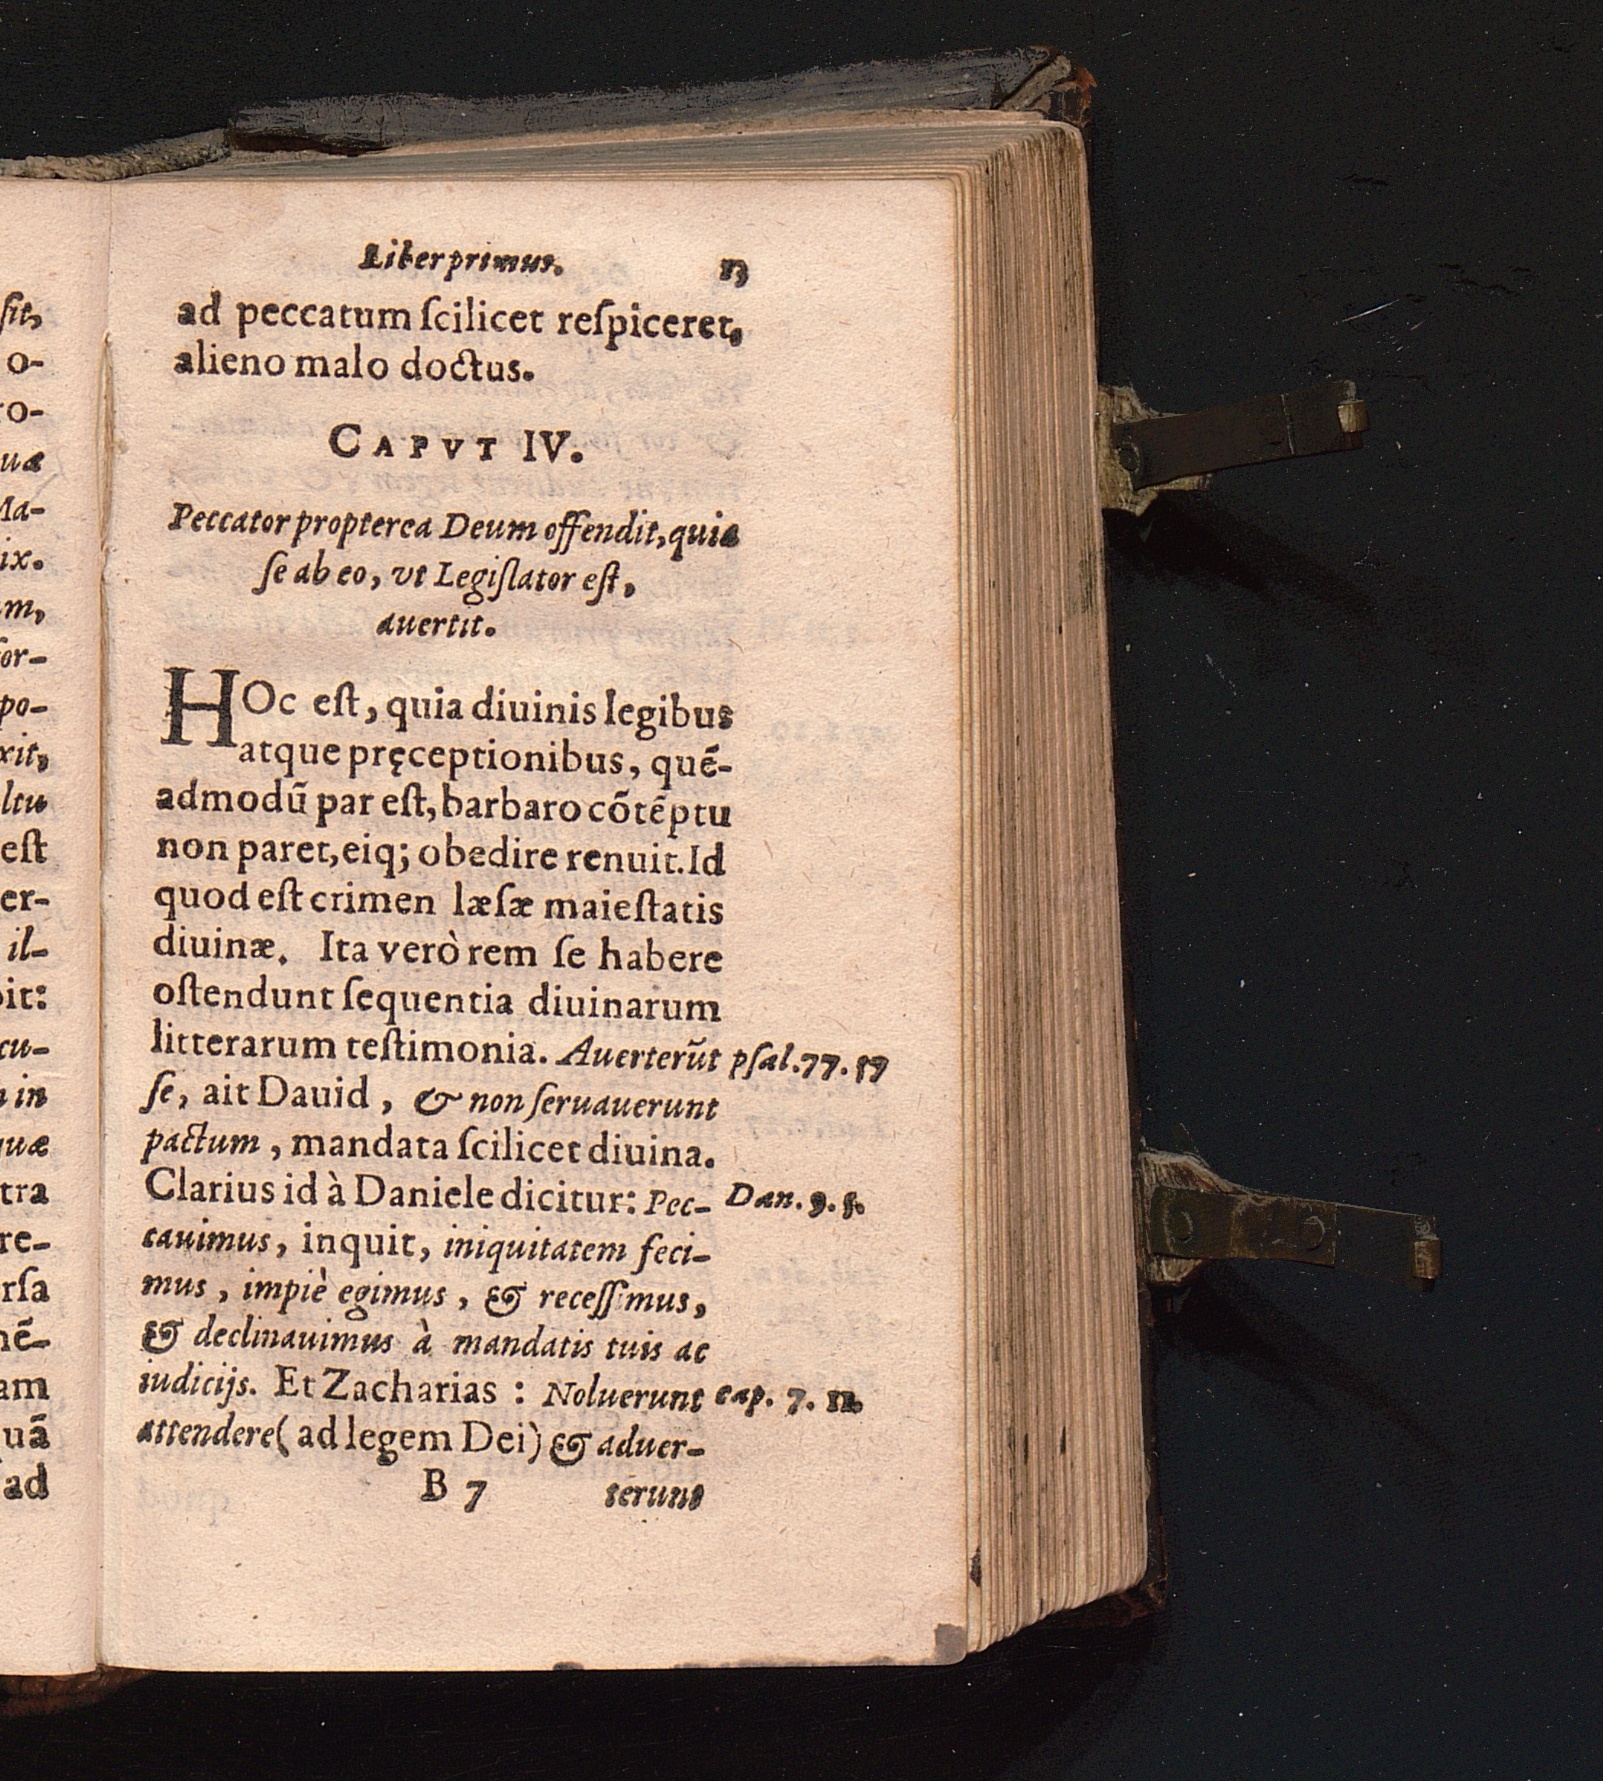 Liber primus. 13
ad peccatum ſcilicet reſpiceret,
alieno malo doctus.
CAPVT IV.
Peccator propterea Deum offendit, quia
ſe ab eo, vt Legiſlator eſt,
auertit.
HOc eſt, quia diuinis legibus
atque pręceptionibus, quē-
admodū par eſt, barbaro cōtēptu
non paret, eiq; obedire renuit. Id
quod eſt crimen læſæ maieſtatis
diuinæ. Ita verò rem ſe habere
oſtendunt ſequentia diuinarum
litterarum teſtimonia. Auerterūt psal. 77. 57
ſe, ait Dauid, & non ſeruauerunt
pactum, mandata ſcilicet diuina.
Clarius id à Daniele dicitur: Pec- Dan. 9. 5.
cauimus, inquit, iniquitatem feci-
mus, impiè egimus, & receſſimus,
& declinauimus à mandatis tuis ac
iudicijs. Et Zacharias: Noluerunt cap. 7. 11.
attendere (ad legem Dei) & aduer-
B 7 terunt
ſit,
o-
ro-
uæ
Ma-
ix.
um,
for-
po-
xit,
ltu
eſt
er-
il-
bit:
cu-
n in
quæ
tra
re-
rſa
nē-
am
quā
ad